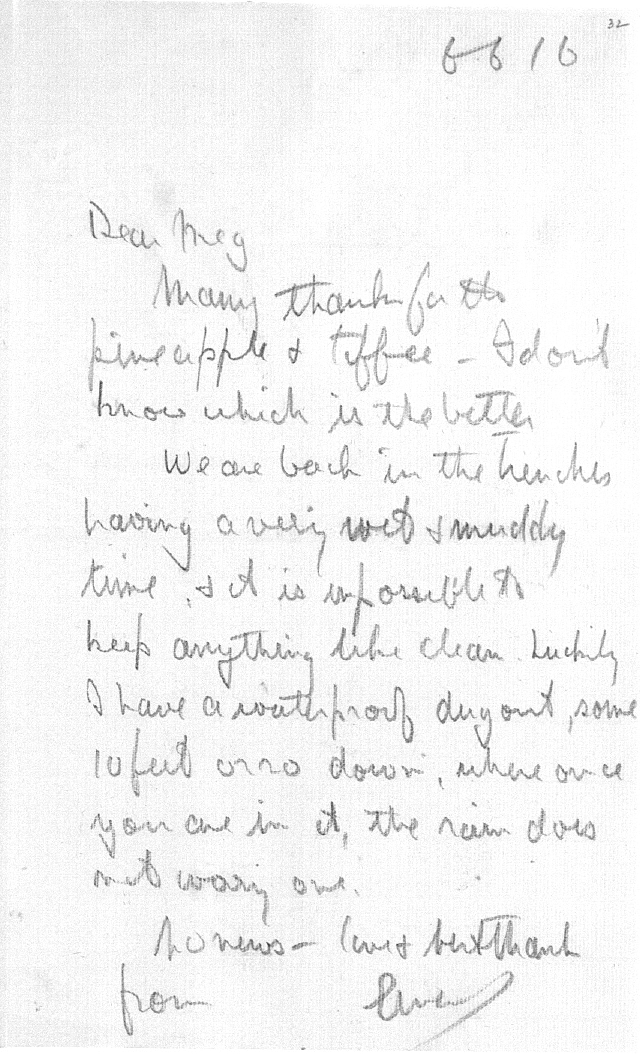 32
6 6 16
Dear Meg
Many thanks for the
pineapple & toffee – I don't
know which is the better
We are back in the trenches
having a very wet & muddy
time, & it is impossible to
keep anything like clean. Luckily
I have a waterproof dugout, some
10 feet or so down, where once
you are in it, the rain does
not worry one.
No news – love & best thanks
from